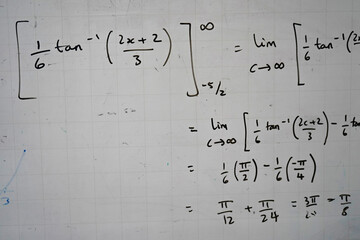 [1/6 tan⁻¹ (2x+2 / 3)]^∞_-5/2 = lim c→∞ [1/6 tan⁻¹ (2
= lim c→∞ [1/6 tan⁻¹ (2c+2 / 3) - 1/6 tan
= 1/6 (π/2) - 1/6 (-π/4)
= π/12 + π/24 = 3π/ = π/8
3